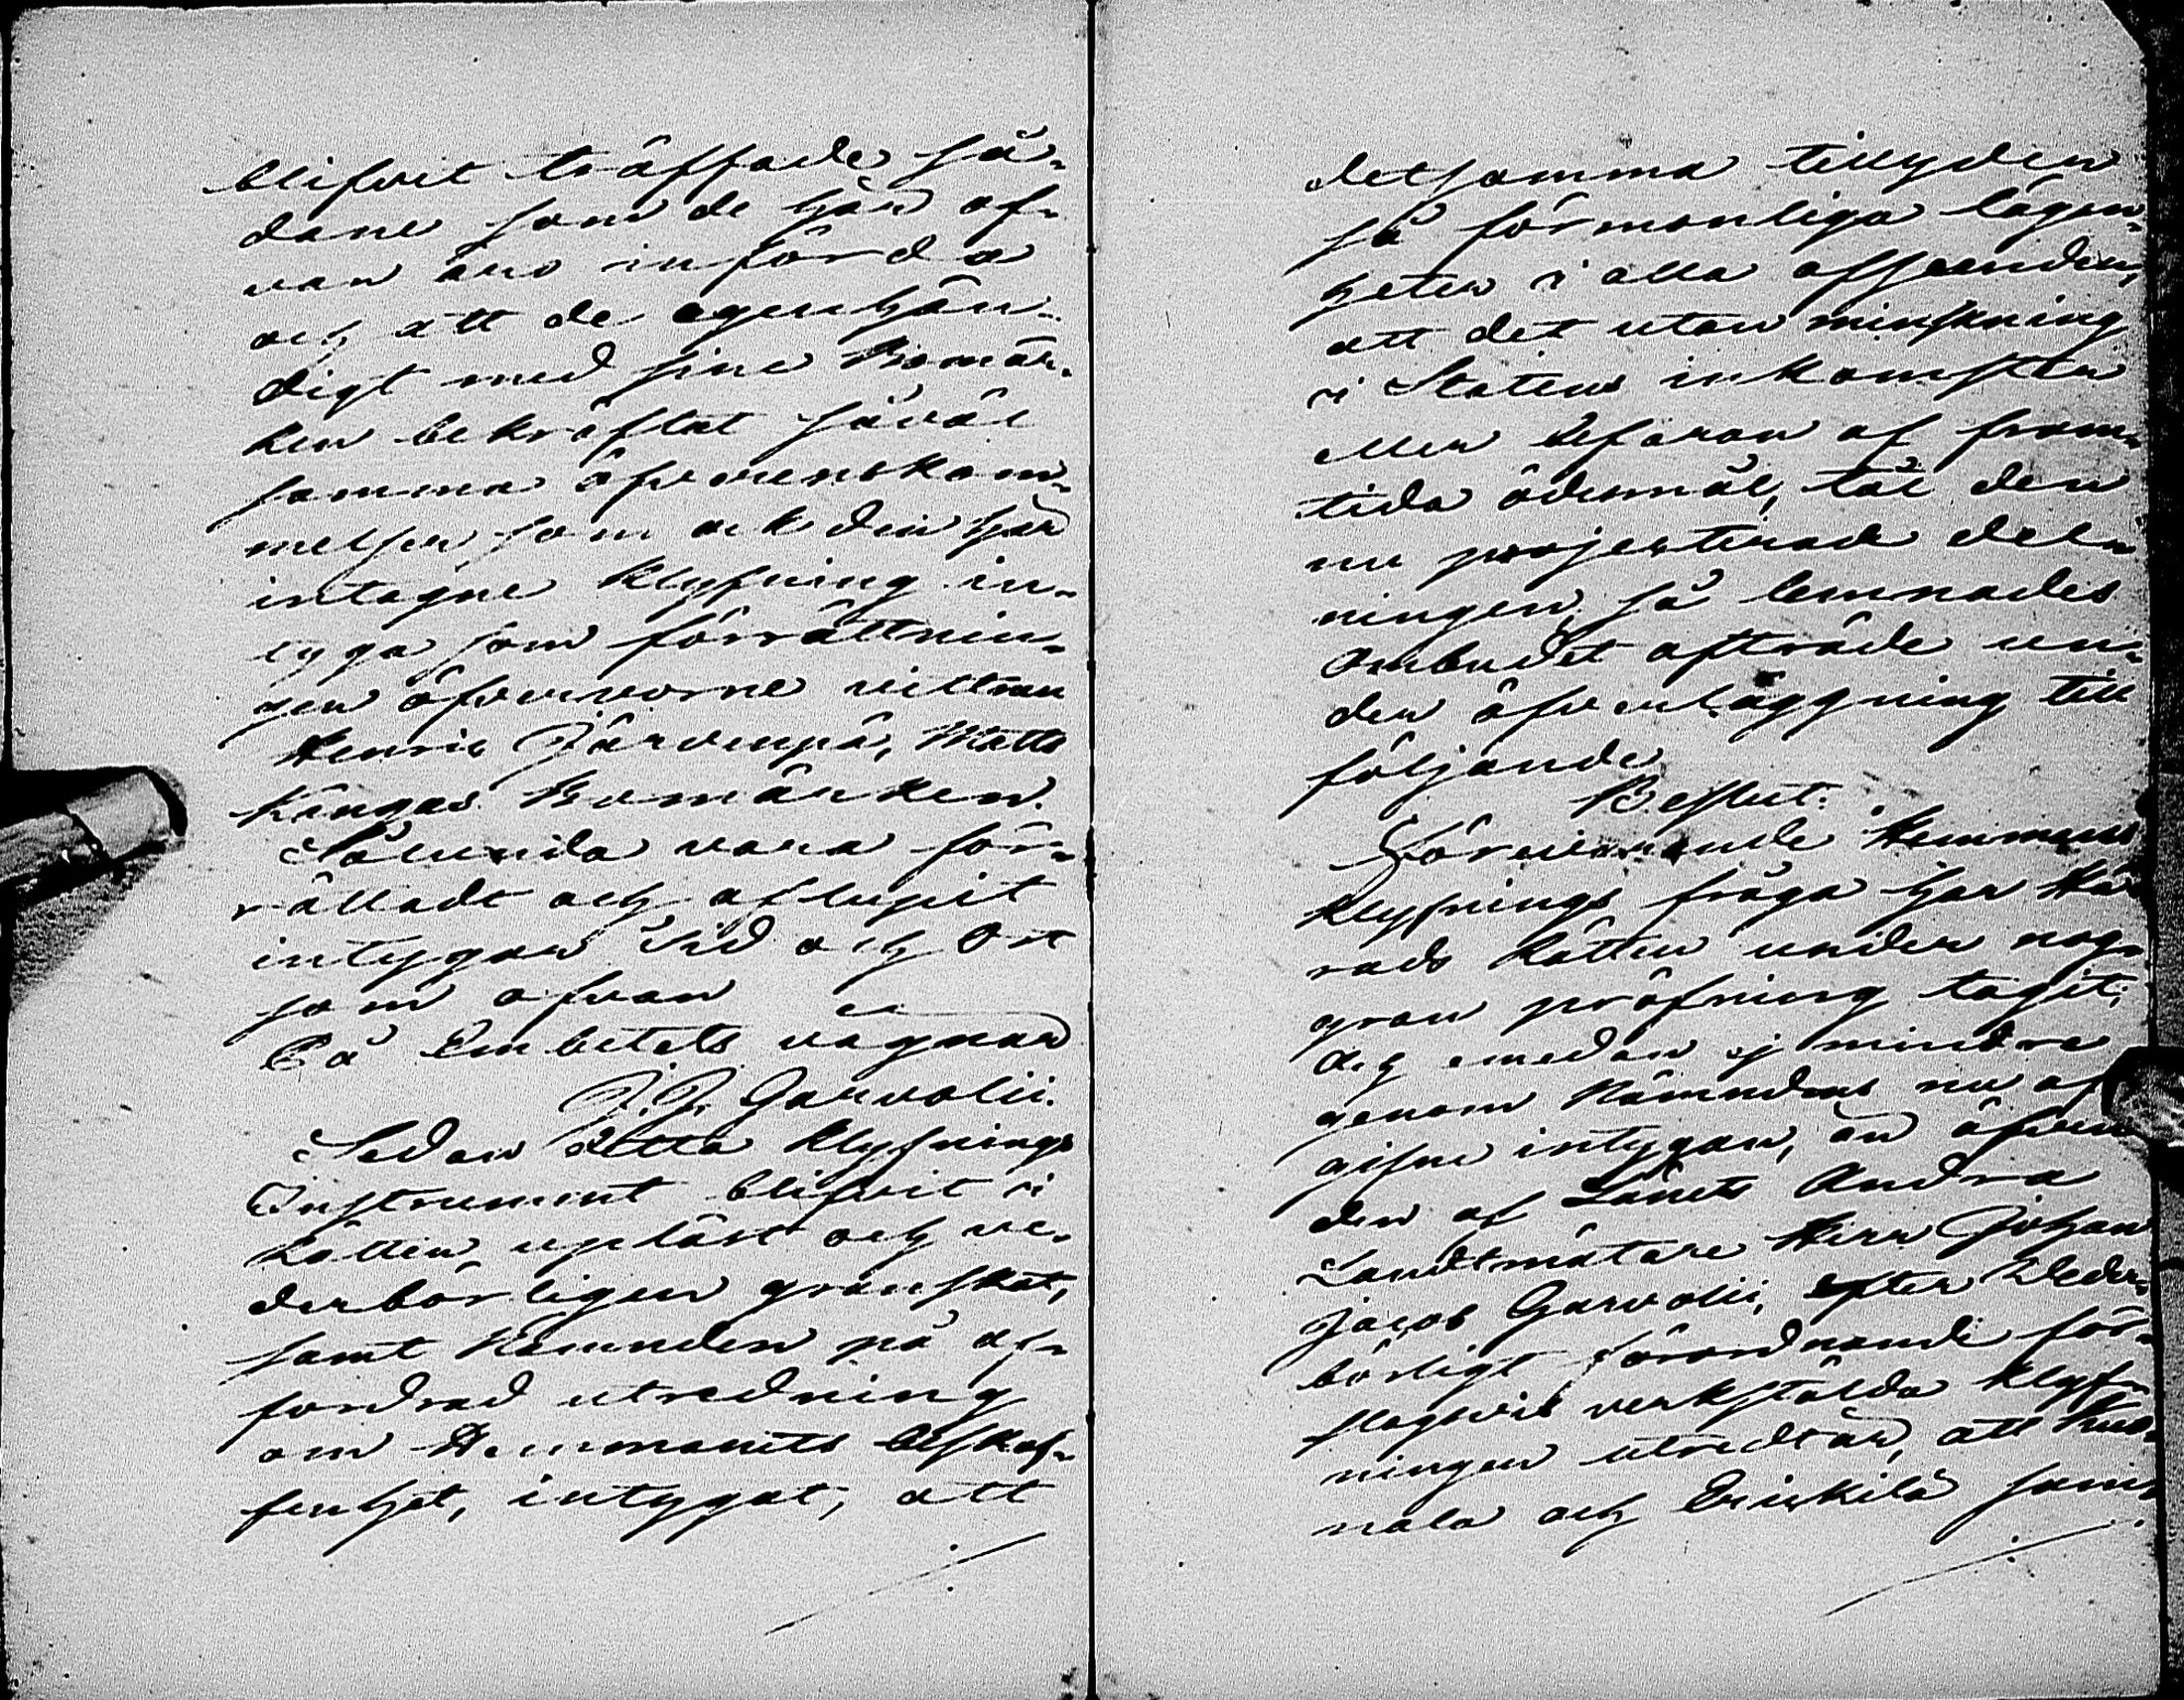 blifvit träffade så-
dane som de här of-
van äro införda
och att de egenhän-
digt med sine Bomär-
ken bekräftat såväl
samma öfverenskom-
melser som ock den här
intagne klyfning in-
tyga som förrättnin-
gen öfvervarne vittnen
Henric Järvenpä, Matts
Kangas Bomärken.
Sålunda vara för-
rättadt och aflupit
intygar Tid och Ort
som ofvan
På Embetets vägnar
J. J. Garvolii.
Sedan detta klyfnings
Instrument blifvit i
Rätten upläst och ve-
derbörligen granskat,
samt Nämnden på af-
fordrad utredning
om Hemmanets beskaf-
fenhet, intygat, att
detsamma tillyden
så förmonliga lägen-
heter i alla afseenden,
att det utan minskning
i Statens inkomster
eller befaran af fram-
tida ödesmål, tål den
nu projecterade del-
ningen, så lemnades
Ombudet afträde un-
der öfverläggning till
följande
Beslut.
Förevarande Hemmans
klyfnings fråga har Hä-
rads Rätten under nog-
gran pröfning tagit;
Och emedan ej mindre
genom Nämndens nu af
gifne intygan, än äfven
den af Länets Andra
Landtmätare Herr Johan
Jacob Garvolii, efter Veder-
börligt förordnande för-
slagsvis verkstälda klyf-
ningen utredt är, att
nala och Eriskilä sam-